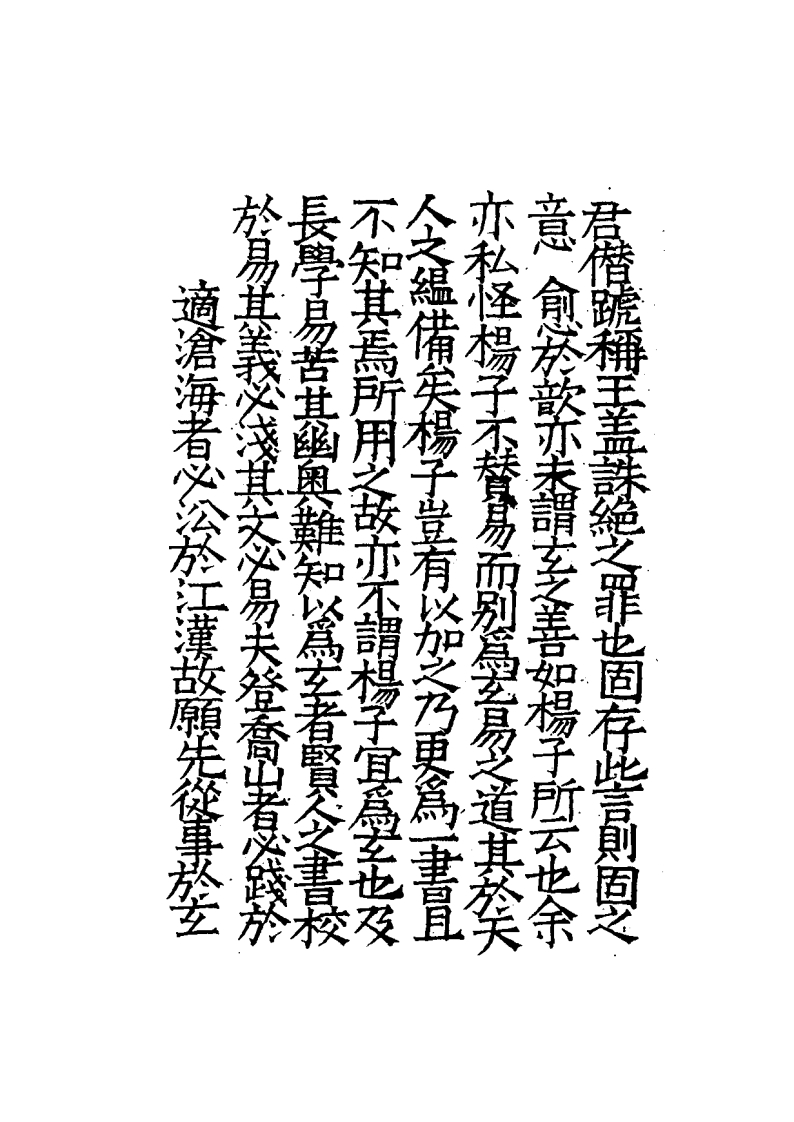 君僭號稱王盖誅絕之罪也固存此言則固之
意 愈於歆亦未謂玄之善如楊子所云也余
亦私怪楊子不贊易而别爲玄易之道其於天
人之緼備矣楊子豈有以加之乃更爲一書且
不知其焉所用之故亦不謂楊子宜爲玄也及
長學易苦其幽奥難知以爲玄者賢人之書校
於易其義必淺其文必易夫登喬山者必踐於
適滄海者必㳂於江漢故願先從事於玄